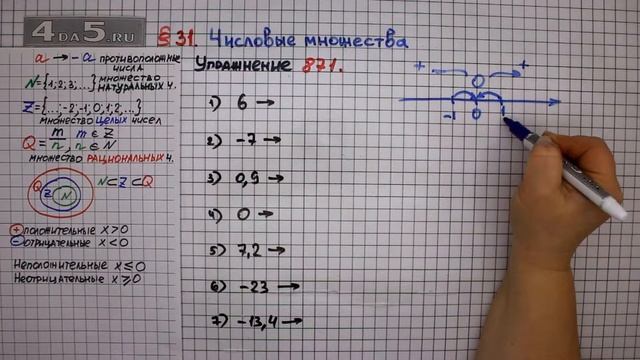 4DA5.RU
§ 31. Числовые множества
Упражнение 871.
a → -a противоположные
числа
N={1;2;3;...} множество
натуральных ч.
Z={...;-2;-1;0;1;2;...}
множество целых чисел
Q= m/n, m∈Z
n∈N
множество рациональных ч.
Q Z N N⊂Z⊂Q
+ положительные x>0
- отрицательные x<0
Неположительные x≤0
Неотрицательные x≥0
1) 6 →
2) -7 →
3) 0,9 →
4) 0 →
5) 7,2 →
6) -23 →
7) -13,4 →
+ 0 +
-1 0 1